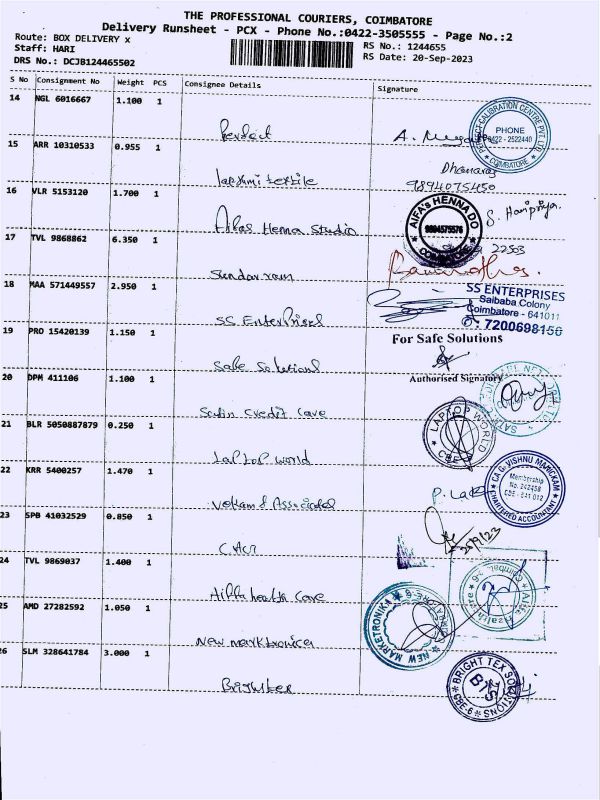 THE PROFESSIONAL COURIERS, COIMBATORE
Delivery Runsheet - PCX - Phone No.:0422-3505555 - Page No.:2
Route: BOX DELIVERY x
RS No.: 1244655
Staff: HARI
RS Date: 20-Sep-2023
DRS No.: DCJB124465502
S No Consignment No Weight PCS Consignee Details Signature
14 NGL 6016667 1.100 1
Perfect
PHONE
0422 - 2522440
COIMBATORE
15 ARR 10310533 0.955 1
Laxshmi textile
Dhanaraj
9894075450
16 VLR 5153120 1.700 1
Aifas Henna Studio
AIFA's HENNA DO
9894575576
COIMBATORE
S. Haripriya.
17 TVL 9868862 6.350 1
Sundar ram
22503
18 MAA 571449557 2.950 1
SS Enterprises
SS ENTERPRISES
Saibaba Colony
Coimbatore - 641011
7200698150
19 PRO 15420139 1.150 1
Safe Solutions
For Safe Solutions
Authorised Signatory
20 DPM 411106 1.100 1
Satin Credit Care
21 BLR 5050887879 0.250 1
Laptop world
LAPTOP WORLD
CBE
22 KRR 5400257 1.470 1
CA G. VISHNU MANICKAM
Membership
No. 242458
CBE - 641 012
CHARTERED ACCOUNTANT
23 SPB 41032529 0.850 1
24 TVL 9869037 1.400 1
25 AMD 27282592 1.050 1
New marktronica
NEW MARKETRONIKA
26 SLM 328641784 3.000 1
Brightex
BRIGHT TEX SOLUTIONS
BTS
CBE-6